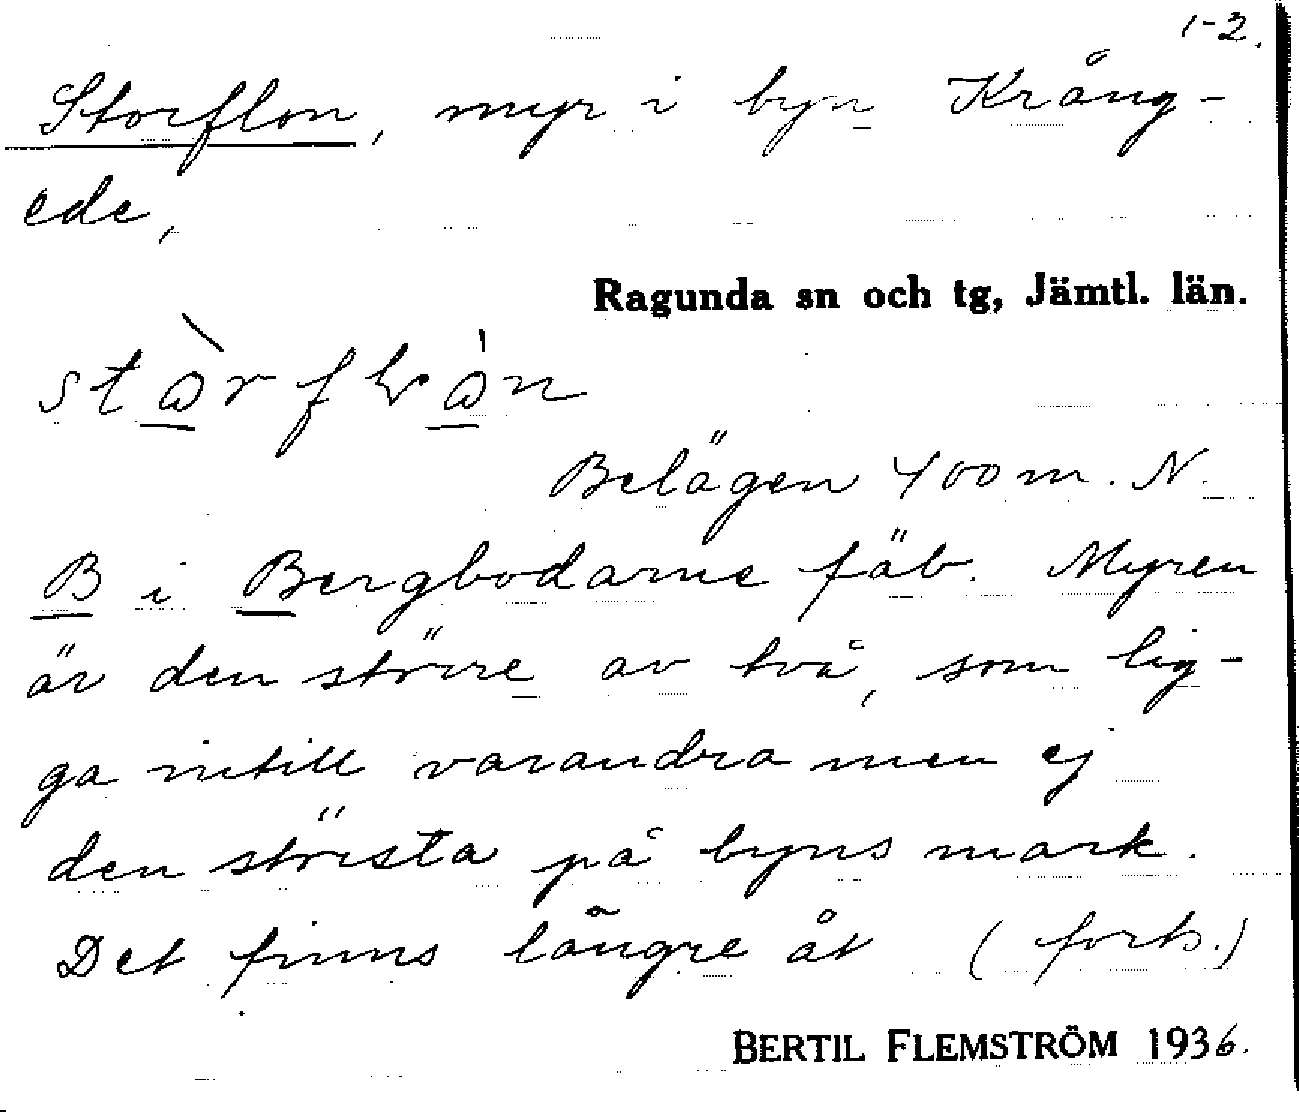 1-2.
Storflon, myr i byn Kräng-
ede,
Ragunda sn och tg, Jämtl. län.
Belägen 400 m. N.
B i Bergbodarne fäb. Myren
är den större av två, som lig-
ga intill varandra men ej
den största på byns mark.
Det finns längre åt (forts.)
BERTIL FLEMSTRÖM 1936.